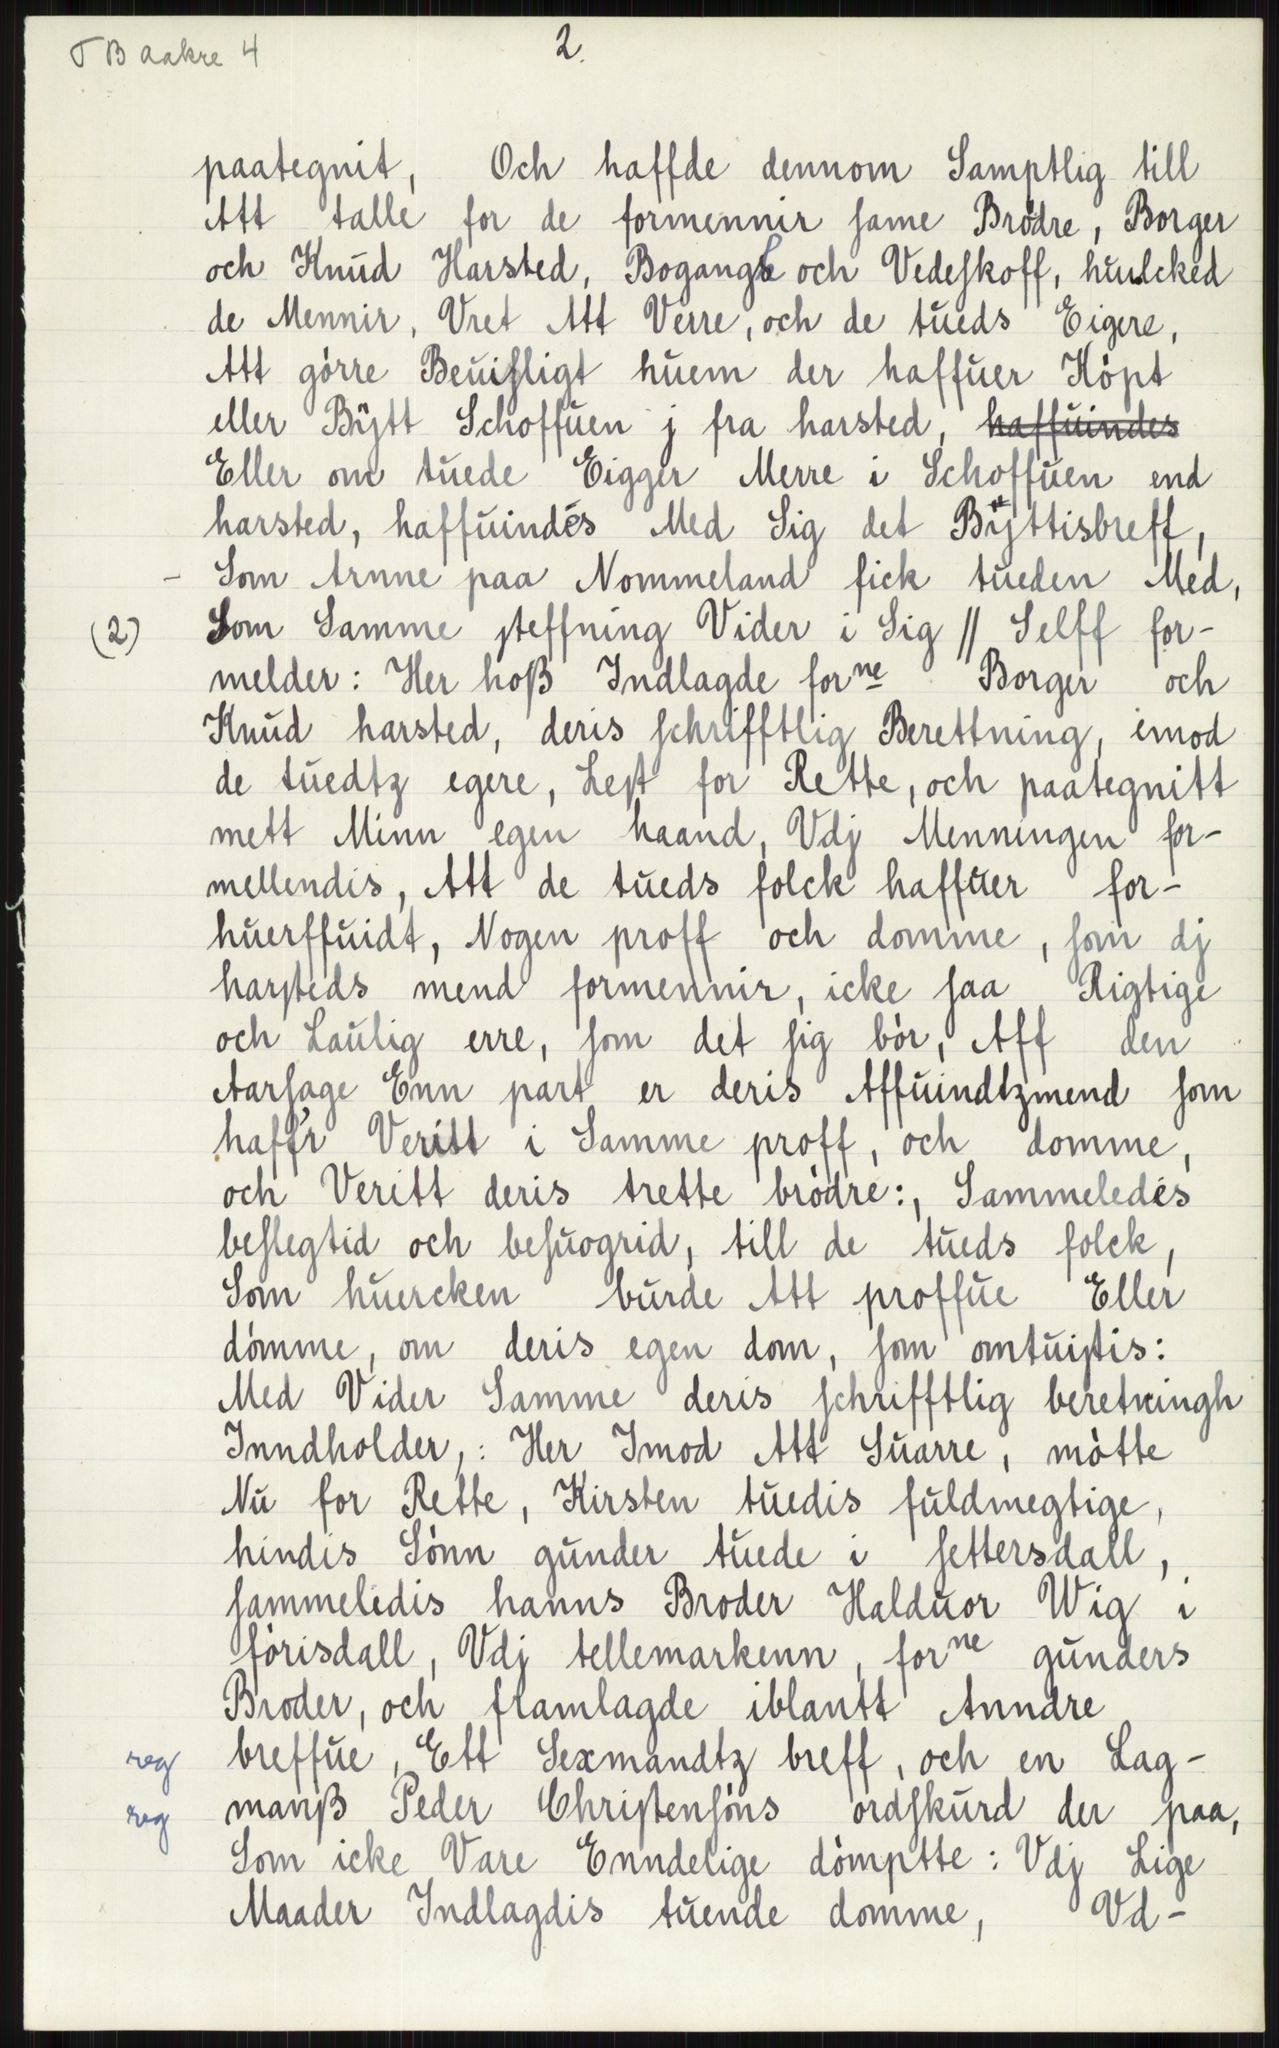 TB Aakre 4
2.
paategnit, Och haffde dennom Samptlig till
Att talle for de formennir same Brødre, Borger
och Knud Harsted, Bogangs och Vedeskoff, huulcked
de Mennir, Vret Att Verre, och de tueds Eigere,
Att gørre Beuisligt huem der haffuer Køpt
eller Bÿtt Schoffuen j fra harsted, haffuindes
Eller om tuede Eigger Merre i Schoffuen end
harsted, haffuindés Med Sig det Bÿttisbreff,
- Som Arnne paa Nommeland fick tueden Med,
(2) Som Samme steffning Vider i Sig // Selff for-
melder: Her hoß Indlagde forne Borger och
Knud harsted, deris schrifftlig Berettning, imod
de tuedtz egere, Lest for Rette, och paategnitt
mett Minn egen haand, Vdj Menningen for-
mellendis, Att de tueds folck haffuer for-
huerffuidt, Nogen proff och domme, som dj
harsteds mend formennir, icke saa Rigtige
och Laulig erre, som det sig bør, Aff den
Aarsage Enn part er deris Affuindtzmend som
haff'r Veritt i Samme proff, och domme,
och Veritt deris trette brødre:, Sammeledés
beslegtid och besuogrid, till de tueds folck,
Som huercken burde Att proffue Eller
dømme, om deris egen dom, som omtuistis:
Med Vider Samme deris schrifftlig beretningh
Inndholder,: Her Imod Att Suarre, møtte
Nu for Rette, Kirsten tuedis fuldmegtige,
hindis Sønn gunder tuede i settersdall,
sammeledis hanns Broder Halduor Wig i
førisdall, Vdj tellemarkenn, forne gunders
Broder, och framlagde iblantt Anndre
reg breffue, Ett Sexmandtz breff, och en Lag-
reg manß Peder Christensøns ordskurd der paa,
Som icke Vare Enndelige dømptte: Vdj Lige
Maader Indlagdis tuende domme, Vd-